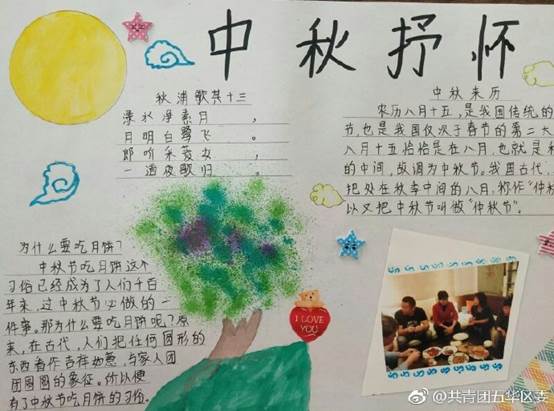 中秋抒怀
秋浦歌其十三
渌水净素月，
月明白鹭飞。
郎听采菱女，
一道夜歌归。
中秋来历
农历八月十五，是我国传统的
节，也是我国仅次于春节的第二大
八月十五恰恰是在八月，也就是
的中间，故谓为中秋节。我国古代，
把处在秋季中间的八月，称作“仲秋
以又把中秋节叫做“仲秋节”。
为什么要吃月饼？
中秋节吃月饼这个
习俗已经成为了人们千百
年来，过中秋节必做的一
件事。那为什么要吃月饼呢？原
来，在古代，人们把任何圆形的
东西看作吉祥如意，与家人团
团圆圆的象征。所以便
有了中秋节吃月饼的习俗。
I LOVE
YOU
@共青团五华区委